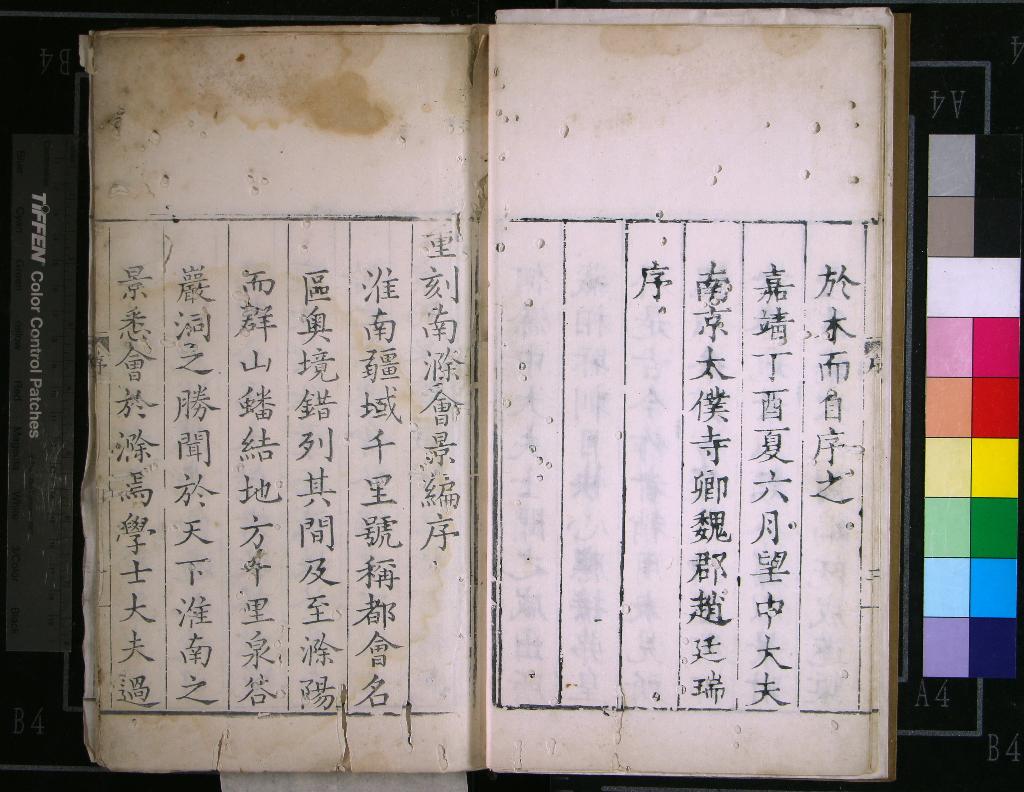 於木而自序之
嘉靖丁酉夏六月望中大夫
南京太僕寺卿魏郡趙廷瑞
序
重刻南滁會景編序
淮南疆域千里號稱都會名
區奥境錯列其間及至滁陽
而群山蟠結地方千里泉谷
巖洞之勝聞於天下淮南之
景悉會於滁焉學士大夫過
序
三
序
TIFFEN Color Control Patches
B4
A4
A4
B4
B4